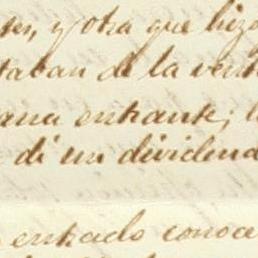 y otra que hizo
taban de la ven
ana entrante; l
di un dividend
entrado conoce